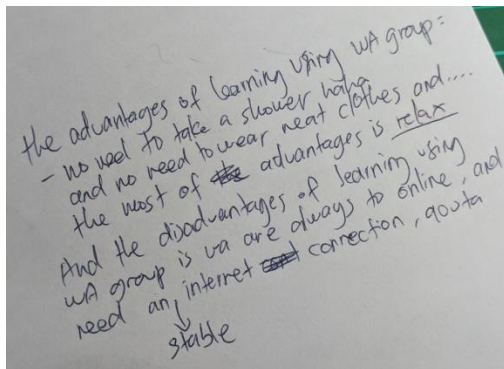 the advantages of learning using WA group:
- no need to take a shower haha
and no need to wear neat clothes and....
the most of advantages is relax
And the disadvantages of learning using
WA group is va are always to online, and
need an internet connection, qouta
stable